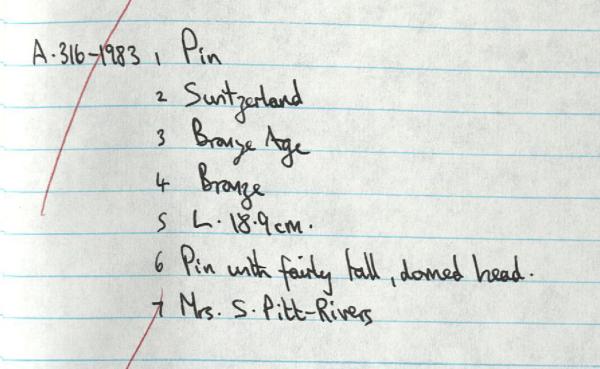 A.316-1983 1 Pin
2 Switzerland
3 Bronze Age
4 Bronze
5 L. 18.9cm.
6 Pin with fairly tall, domed head.
7 Mrs. S. Pitt-Rivers